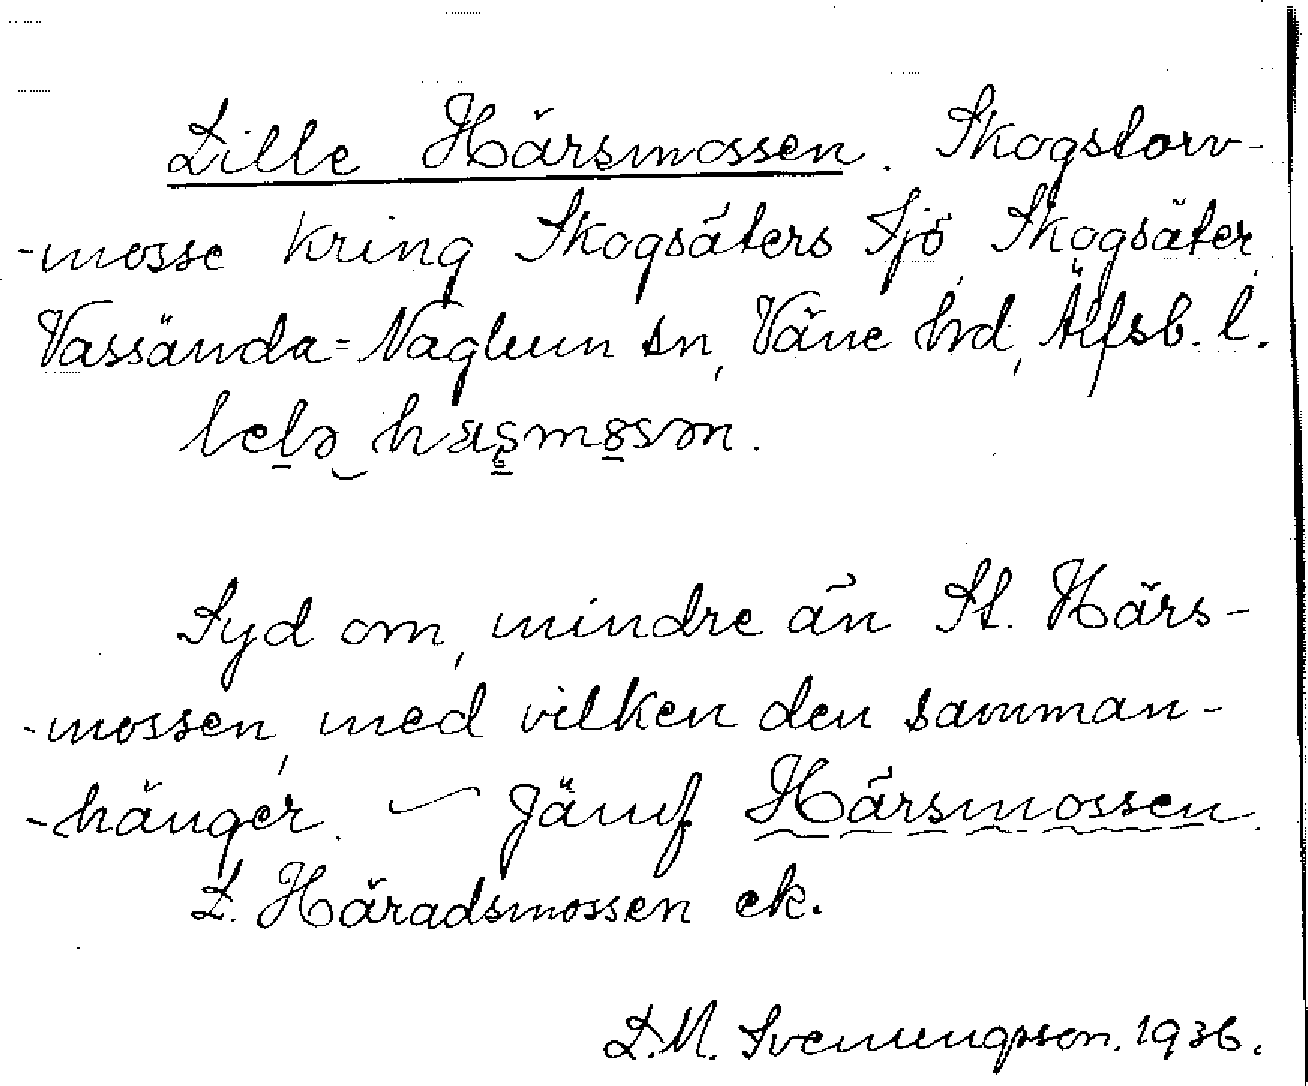 Lille Härsmossen. Skogstorv-
-mosse kring Skogsäters Sjö, Skogsäter,
Vassända=Naglum sn, Väne hrd, Älfsb. l.

Syd om, mindre än St. Härs-
-mossen, med vilken den samman-
-hänger. – Jämf Härsmossen.
L. Häradsmossen ek.
L.M. Svenungsson. 1936.